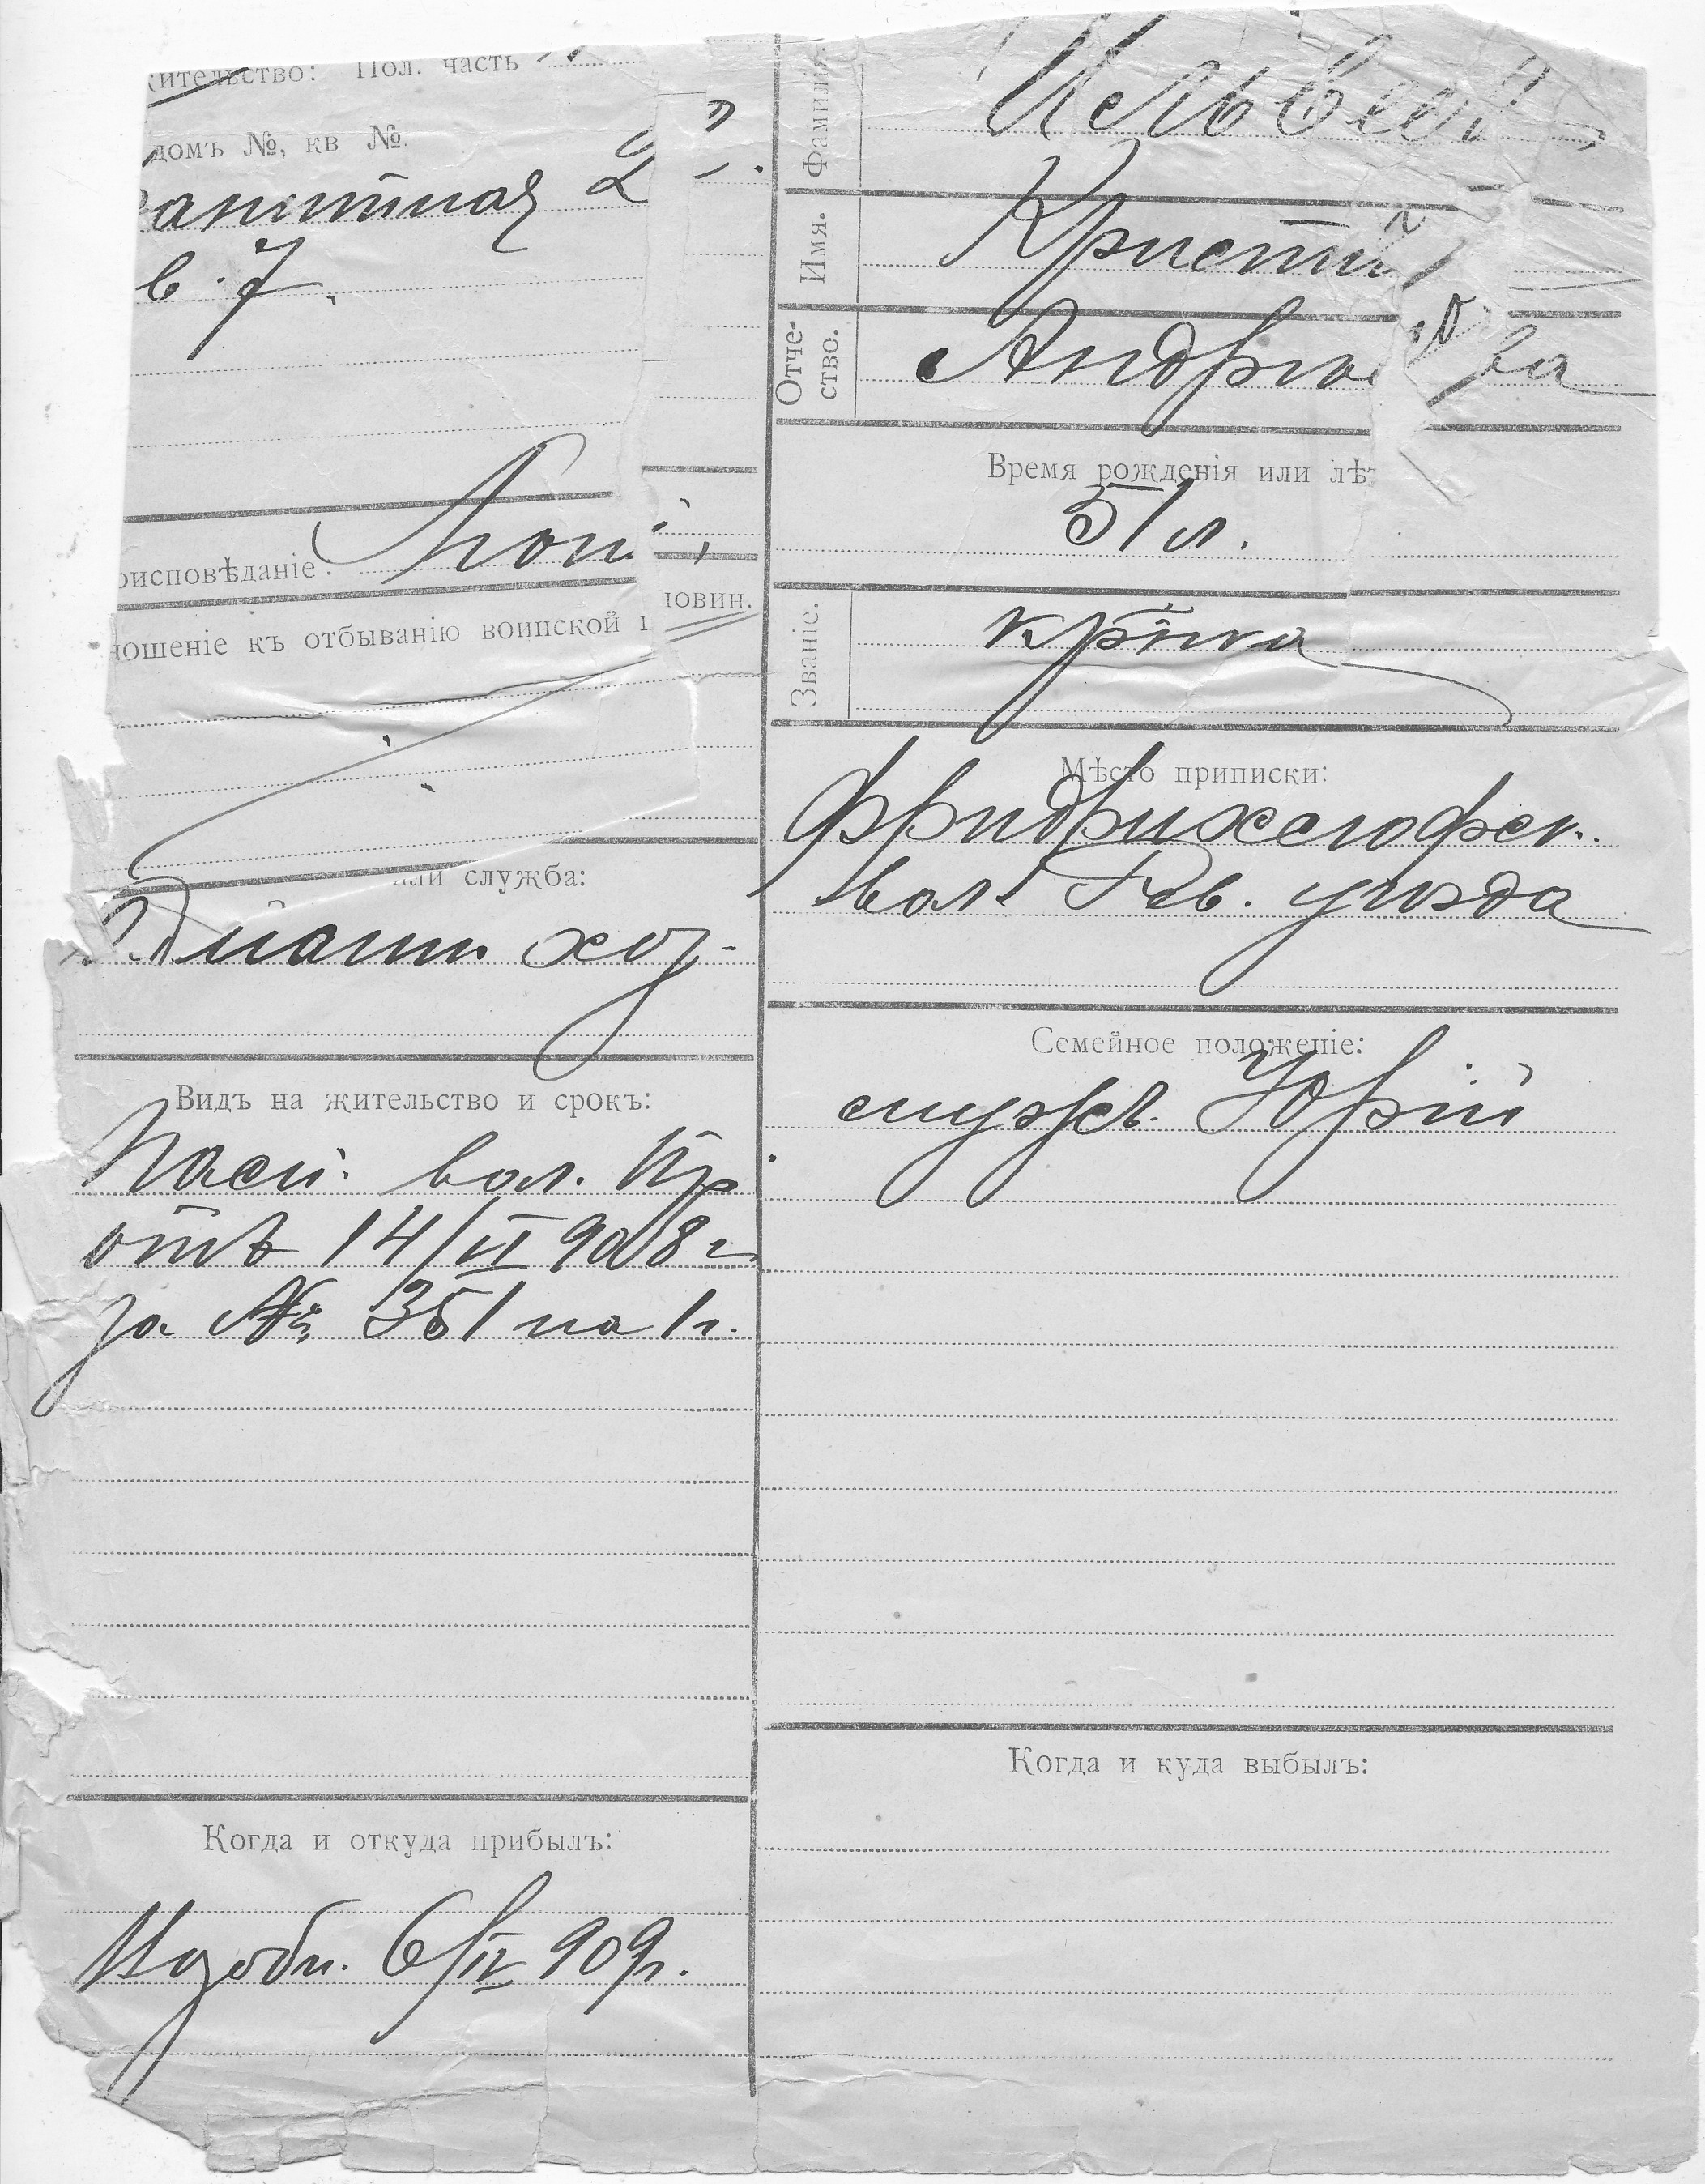 жительство: Пол. часть
домъ №, кв №.
в. 7.
оисповѣданіе:
ношеніе къ отбыванію воинской п
ловин.
или служба:
хоз.
Видъ на жительство и срокъ:
Пасп. вол. Пр
отъ 14/VI 908 г.
за № 351 на 1 г.
Когда и откуда прибылъ:
6/IV 909 г.
Фамилія.
Имя.
Кристи
Отче-
ство.
Андрю ва
Время рожденія или лѣт
51 л.
Званіе.
кр-нка
Мѣсто приписки:
Фридрихсгофск.
вол. Рев. уѣзда
Семейное положеніе:
мужъ. Юрій
Когда и куда выбылъ: